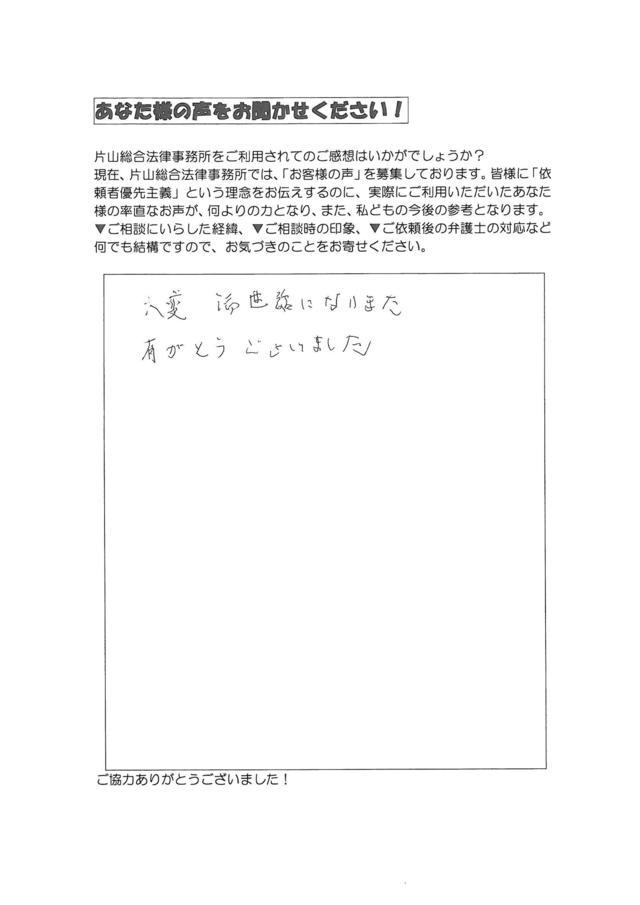 あなた様の声をお聞かせください！
片山総合法律事務所をご利用されてのご感想はいかがでしょうか？
現在、片山総合法律事務所では、「お客様の声」を募集しております。皆様に「依
頼者優先主義」という理念をお伝えするのに、実際にご利用いただいたあなた
様の率直なお声が、何よりの力となり、また、私どもの今後の参考となります。
▼ご相談にいらした経緯、▼ご相談時の印象、▼ご依頼後の弁護士の対応など
何でも結構ですので、お気づきのことをお寄せください。
大変 御世話になりました
有がとうございました
ご協力ありがとうございました！